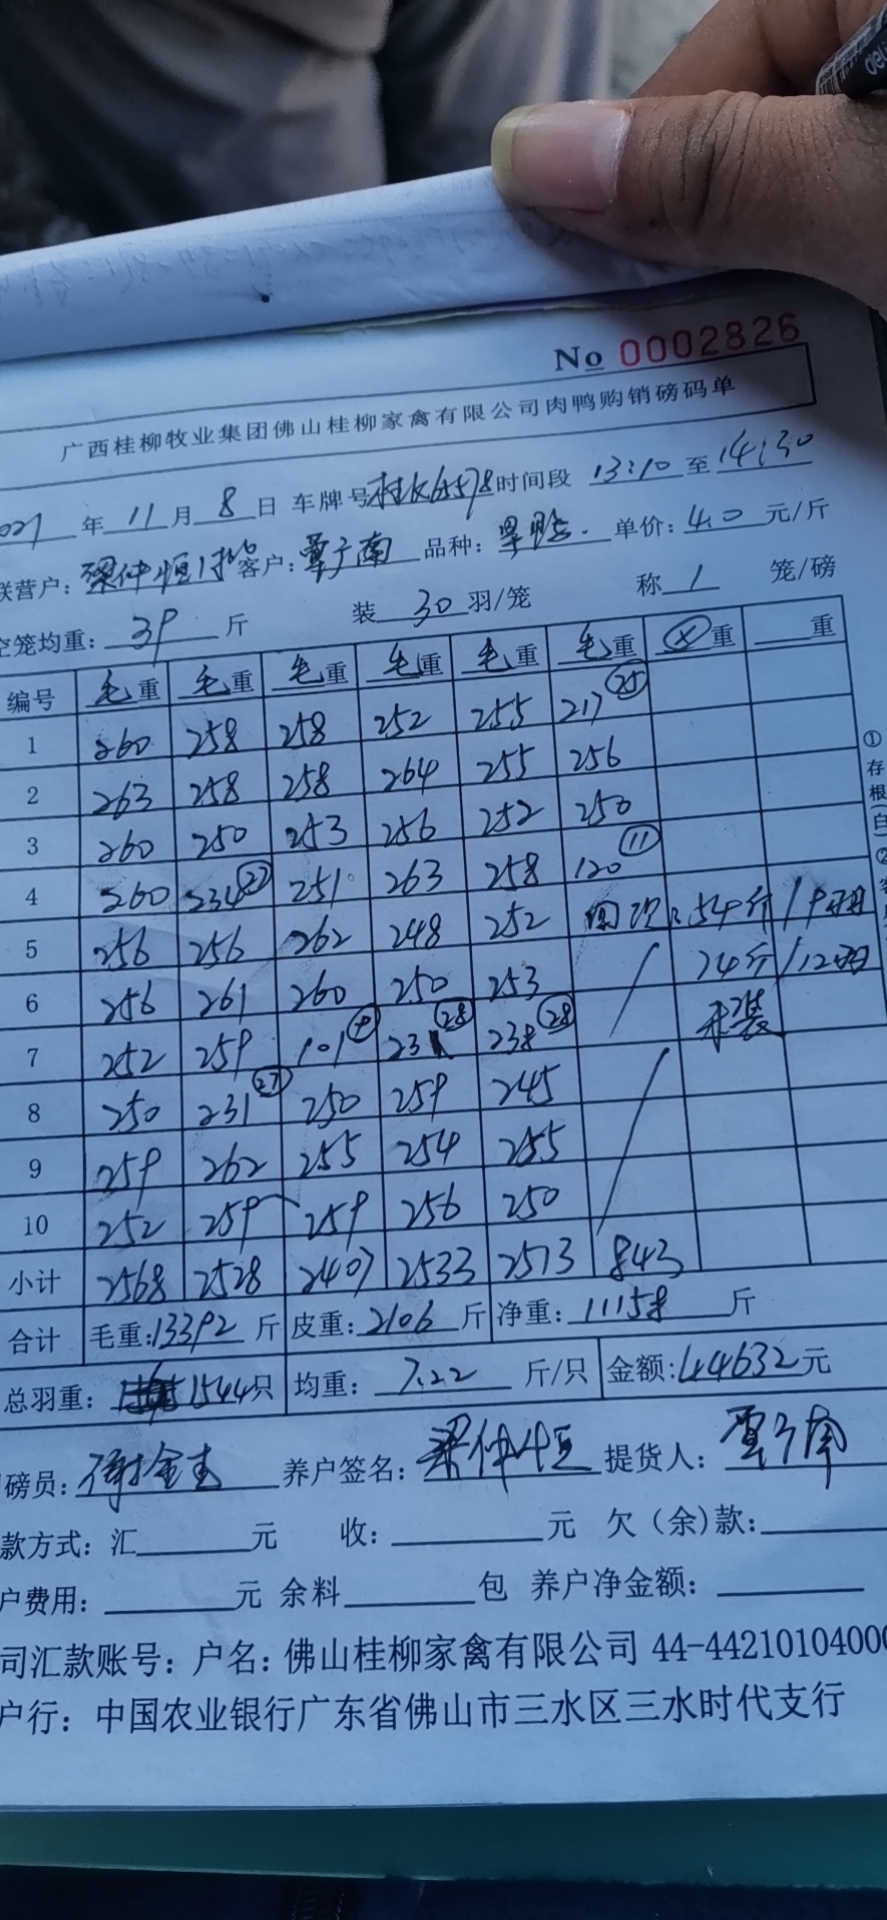 No 0002826
广西桂柳牧业集团佛山桂柳家禽有限公司肉鸭购销磅码单
年 11 月 8 日 车牌号 时间段 13:10 至 14:30
联营户: 梁仲恒 客户: 覃广南 品种: 单价: 4.0 元/斤
空笼均重: 39 斤 装 30 羽/笼 称 1 笼/磅
编号 毛重 毛重 毛重 毛重 毛重 毛重 重 重
1 260 258 258 252 255 217 (25)
2 263 258 258 264 255 256
3 260 250 253 256 252 250
4 260 234 (27) 251 263 258 120 (11)
5 256 256 262 248 252 54斤
6 256 261 260 250 253 74斤/12羽
7 252 259 101 23 (28) 238 (28) 未装
8 250 231 (27) 250 259 245
9 259 262 255 254 255
10 252 259 259 256 250
小计 2568 2528 2407 2533 2513 843
合计 毛重: 13392 斤 皮重: 2106 斤 净重: 11158 斤
总羽重: 1544 只 均重: 7.22 斤/只 金额: 44632 元
磅员: 养户签名: 梁仲恒 提货人: 覃广南
款方式: 汇 元 收: 元 欠(余)款:
户费用: 元 余料 包 养户净金额:
司汇款账号: 户名: 佛山桂柳家禽有限公司 44-44210104000
户行: 中国农业银行广东省佛山市三水区三水时代支行
①存根(白)②